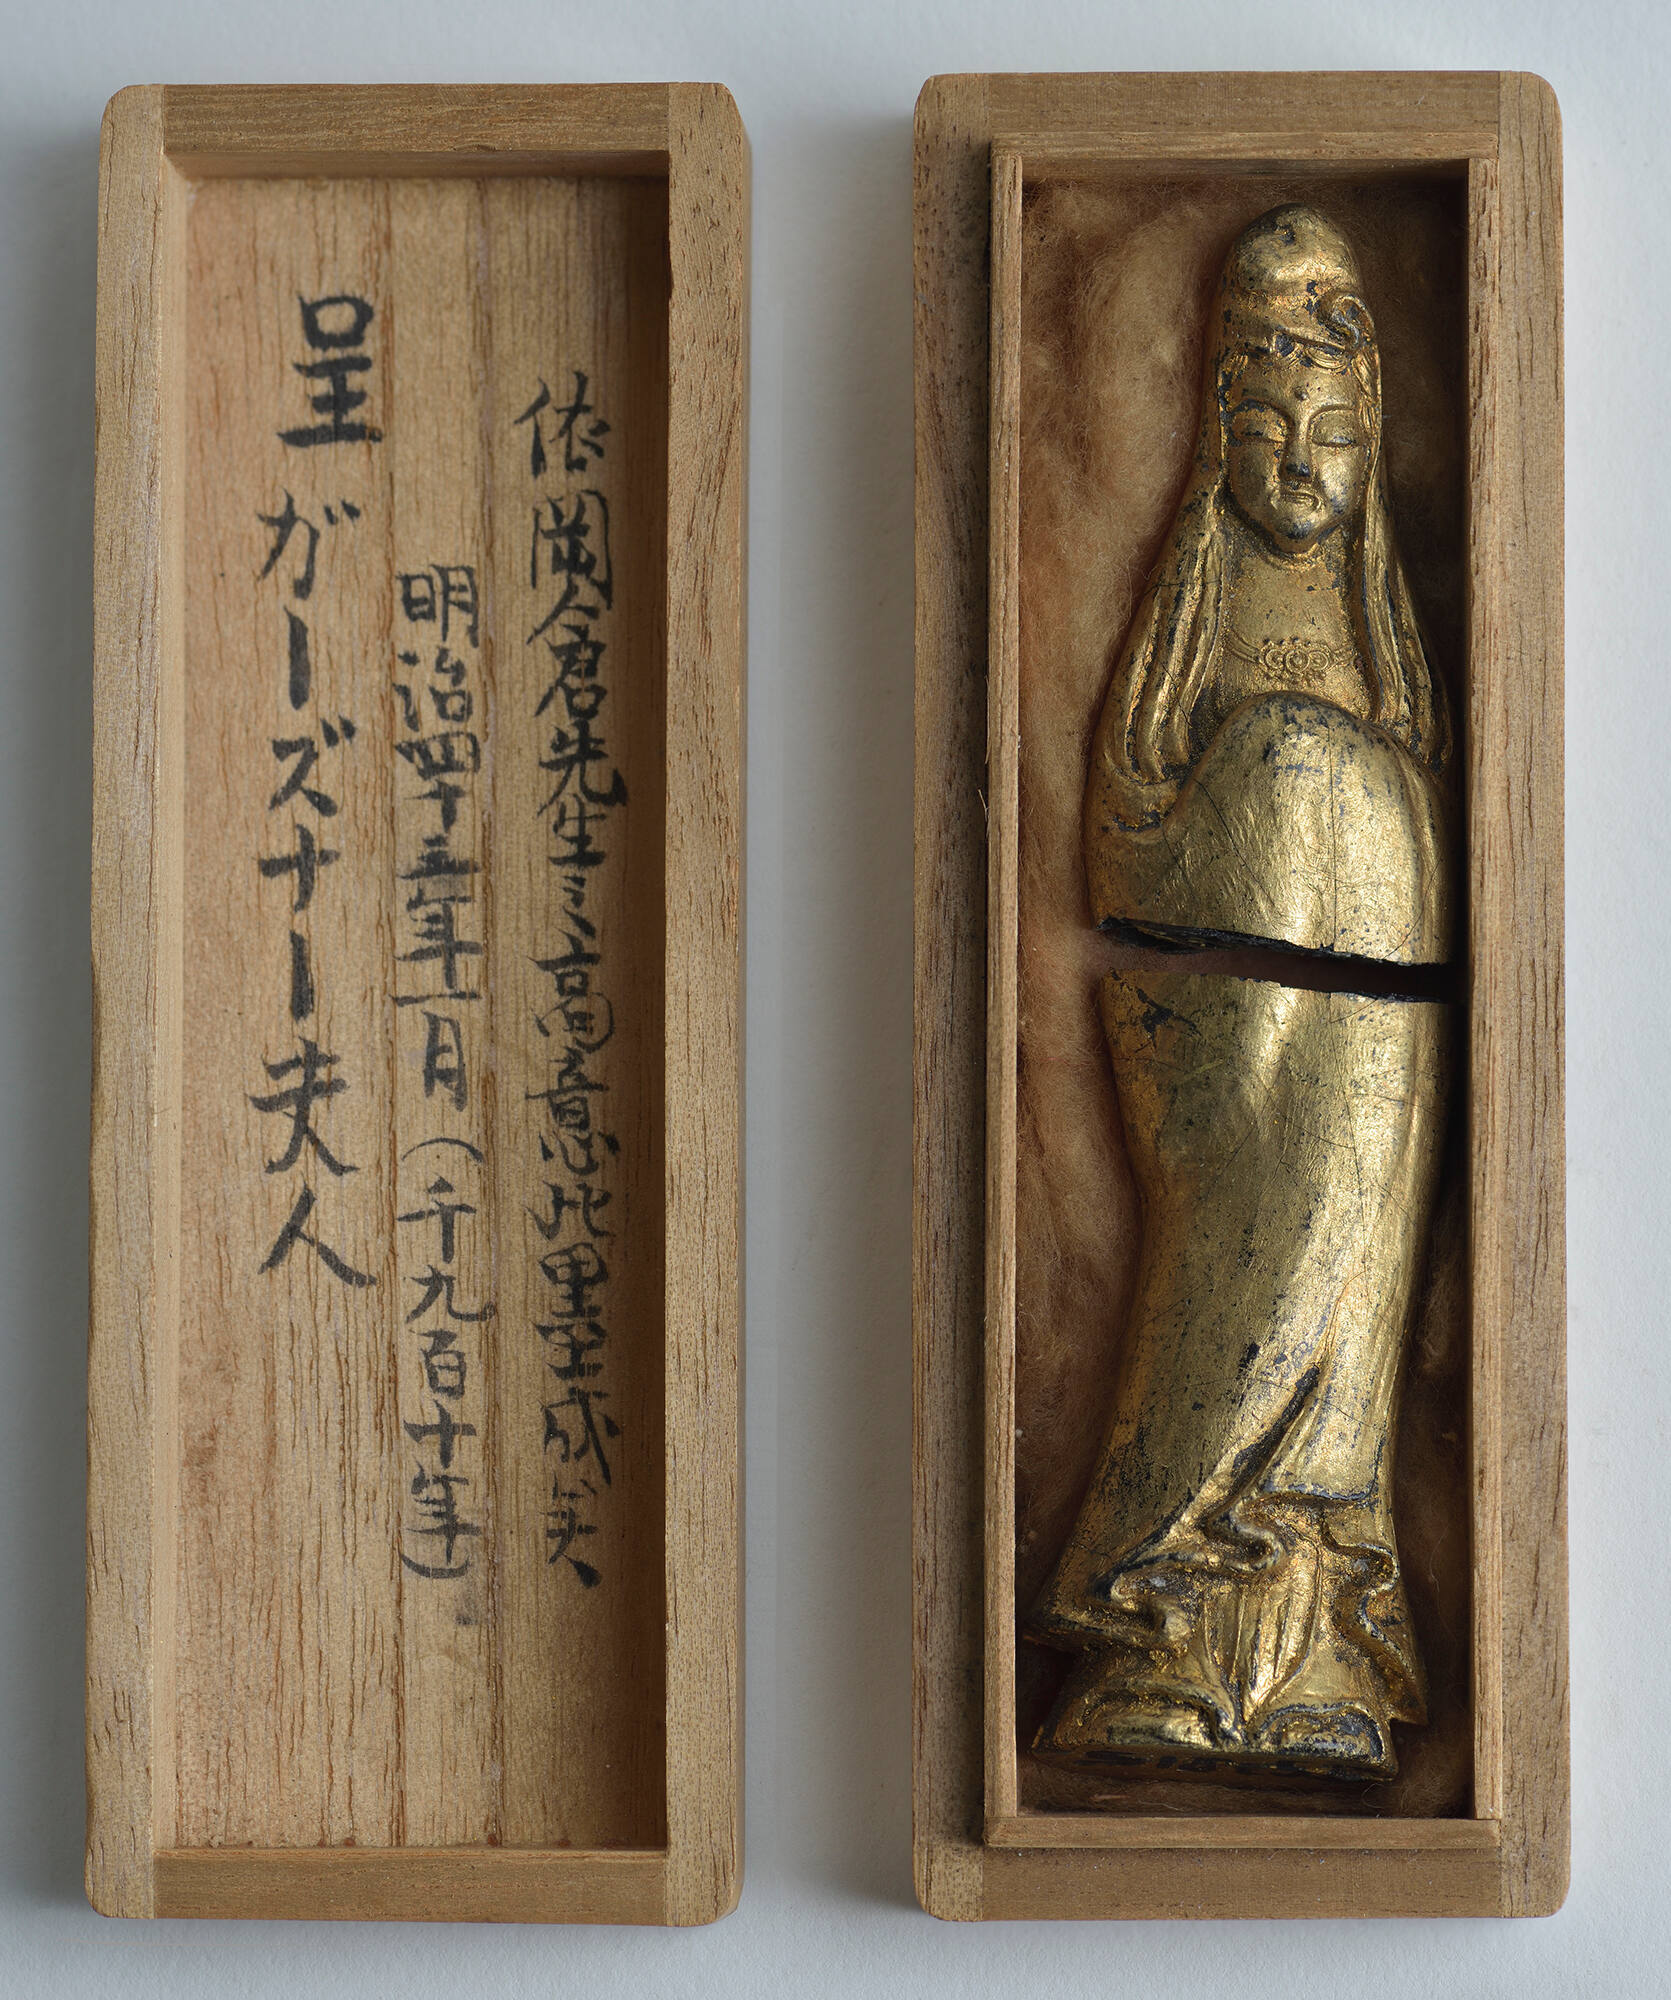 依岡倉先生之高意
明治四十三年一月(千九百十年)
呈ガーズナー夫人